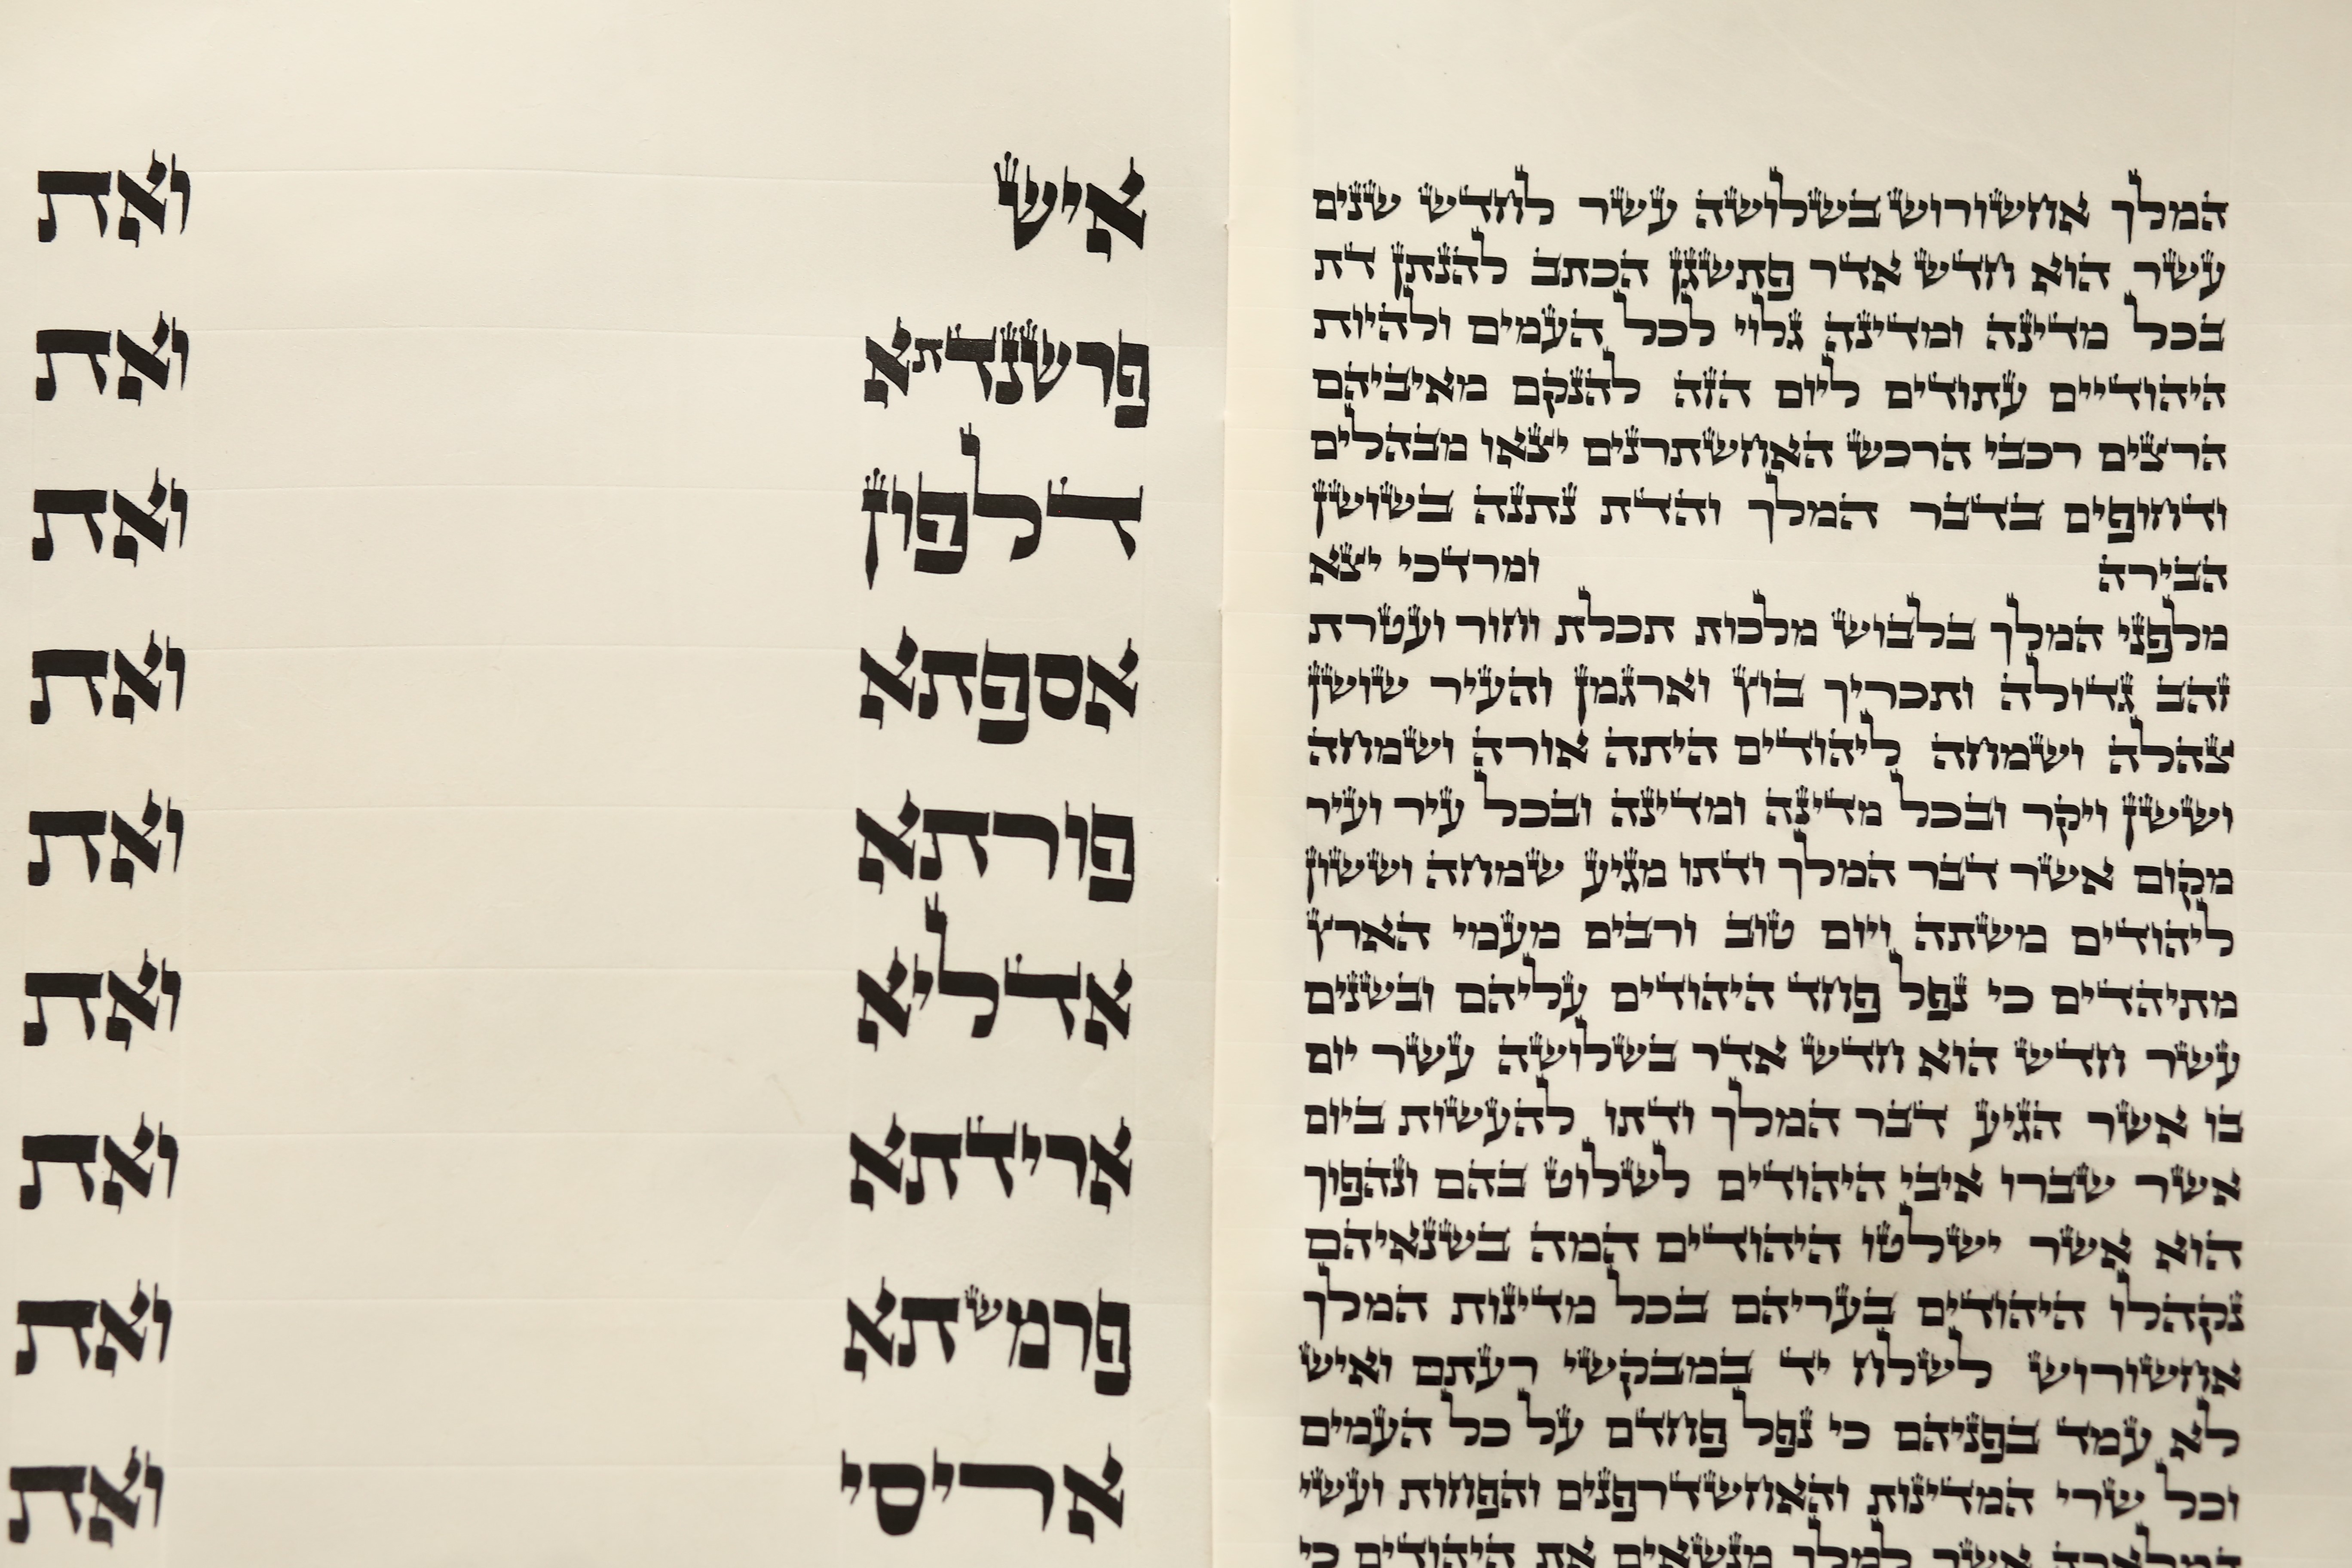 המלך אחשורוש בשלושה עשר לחדש שנים
עשר הוא חדש אדר פתשגן הכתב להנתן דת
בכל מדינה ומדינה גלוי לכל העמים ולהיות
היהודיים עתודים ליום הזה להנקם מאיביהם
הרצים רכבי הרכש האחשתרנים יצאו מבהלים
ודחופים בדבר המלך והדת נתנה בשושן
הבירה ומרדכי יצא
מלפני המלך בלבוש מלכות תכלת וחור ועטרת
זהב גדולה ותכריך בוץ וארגמן והעיר שושן
צהלה ושמחה ליהודים היתה אורה ושמחה
וששן ויקר ובכל מדינה ומדינה ובכל עיר ועיר
מקום אשר דבר המלך ודתו מגיע שמחה וששון
ליהודים משתה ויום טוב ורבים מעמי הארץ
מתיהדים כי נפל פחד היהודים עליהם ובשנים
עשר חדש הוא חדש אדר בשלושה עשר יום
בו אשר הגיע דבר המלך ודתו להעשות ביום
אשר שברו איבי היהודים לשלוט בהם ונהפוך
הוא אשר ישלטו היהודים המה בשנאיהם
נקהלו היהודים בעריהם בכל מדינות המלך
אחשורוש לשלח יד במבקשי רעתם ואיש
לא עמד בפניהם כי נפל פחדם על כל העמים
וכל שרי המדינות והאחשדרפנים והפחות ועשי
המלאכה אשר למלך מנשאים את היהודים כי
איש ואת
פרשנדתא ואת
דלפון ואת
אספתא ואת
פורתא ואת
אדליא ואת
ארידתא ואת
פרמשתא ואת
אריסי ואת